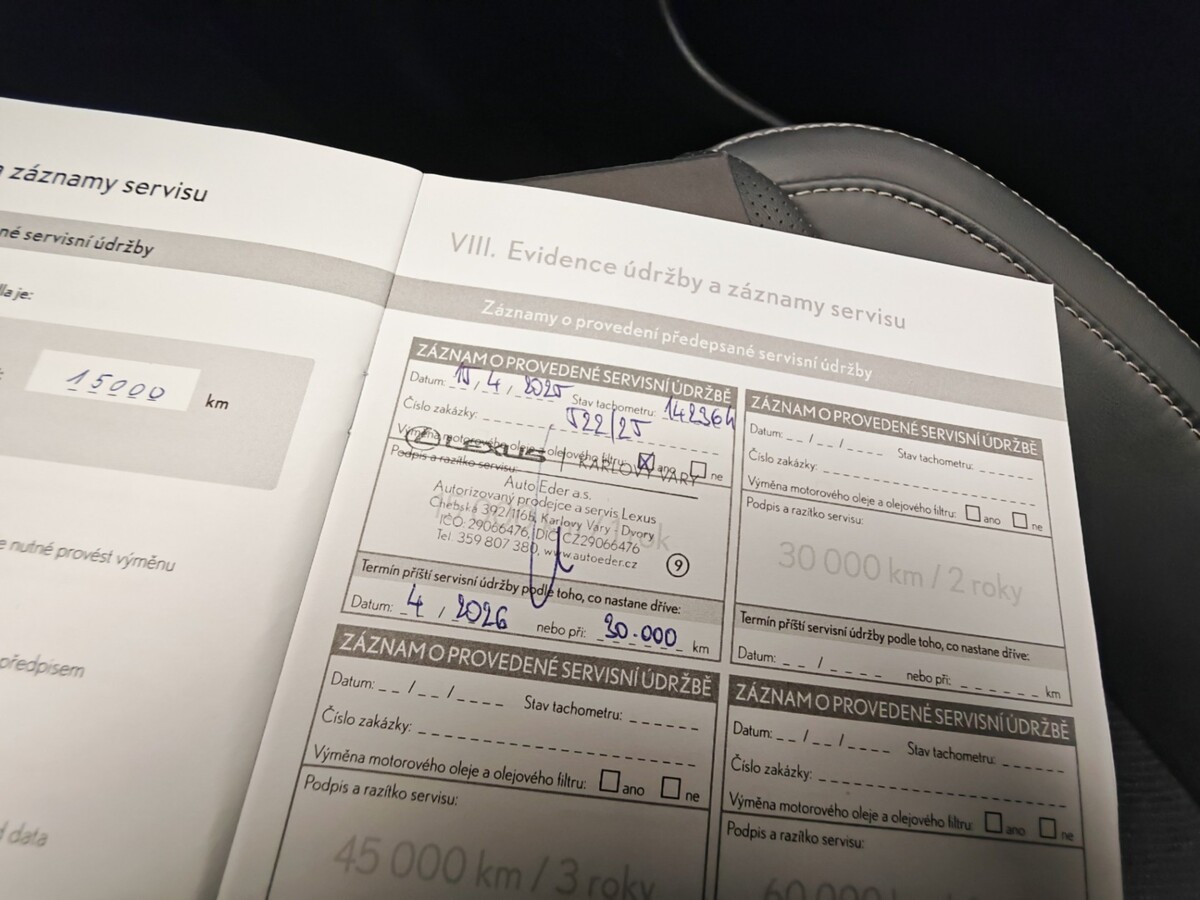 záznamy servisu
né servisní údržby
la je:
15000 km
e nutné provést výměnu
předpisem
data
VIII. Evidence údržby a záznamy servisu
Záznamy o provedení předepsané servisní údržby
ZÁZNAM O PROVEDENÉ SERVISNÍ ÚDRŽBĚ
Datum: 15/4/2025 Stav tachometru:
Číslo zakázky: 522/25
Výměna motorového oleje a olejového filtru: ☒ ano ☐ ne
Podpis a razítko servisu:
LEXUS | KARLOVY VARY
Auto Eder a.s.
Autorizovaný prodejce a servis Lexus
Chebská 392/116b, Karlovy Vary - Dvory
IČO: 29066476, DIČ: CZ29066476
Tel. 359 807 380, www.autoeder.cz
9
Termín příští servisní údržby podle toho, co nastane dříve:
Datum: 4/2026 nebo při: 30.000 km
ZÁZNAM O PROVEDENÉ SERVISNÍ ÚDRŽBĚ
Datum: __/__/____ Stav tachometru: ______
Číslo zakázky:
Výměna motorového oleje a olejového filtru: ☐ ano ☐ ne
Podpis a razítko servisu:
30 000 km / 2 roky
Termín příští servisní údržby podle toho, co nastane dříve:
Datum: __/____ nebo při: ______ km
ZÁZNAM O PROVEDENÉ SERVISNÍ ÚDRŽBĚ
Datum: __/__/____ Stav tachometru: ______
Číslo zakázky:
Výměna motorového oleje a olejového filtru: ☐ ano ☐ ne
Podpis a razítko servisu:
45 000 km / 3 roky
ZÁZNAM O PROVEDENÉ SERVISNÍ ÚDRŽBĚ
Datum: __/__/____ Stav tachometru: ______
Číslo zakázky:
Výměna motorového oleje a olejového filtru: ☐ ano ☐ ne
Podpis a razítko servisu:
60 000